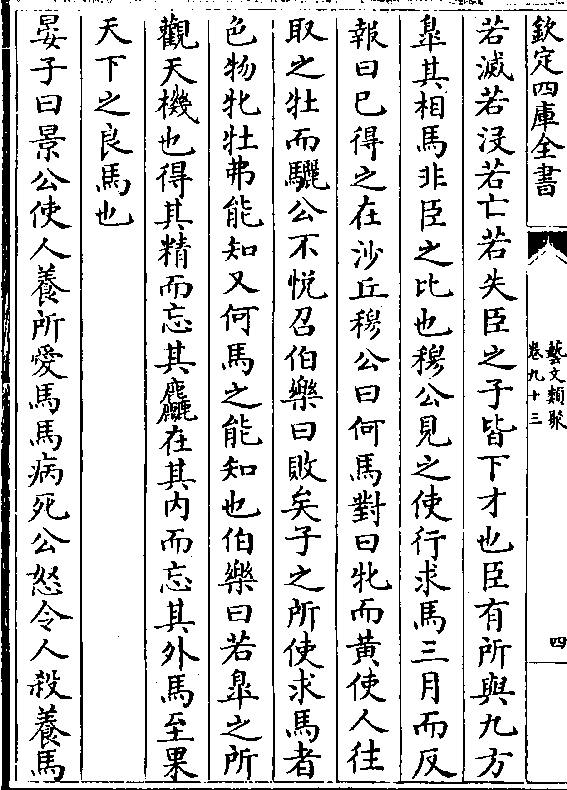 欽定四庫全書
藝文類聚
卷九十三
四
若滅若沒若亡若失臣之子皆下才也臣有所與九方
臯其相馬非臣之比也穆公見之使行求馬三月而反
報曰已得之在沙丘穆公曰何馬對曰牝而黃使人往
取之牡而驪公不悅召伯樂曰敗矣子之所使求馬者
色物牝牡弗能知又何馬之能知也伯樂曰若臯之所
觀天機也得其精而忘其麤在其內而忘其外馬至果
天下之良馬也
晏子曰景公使人養所愛馬馬病死公怒令人殺養馬